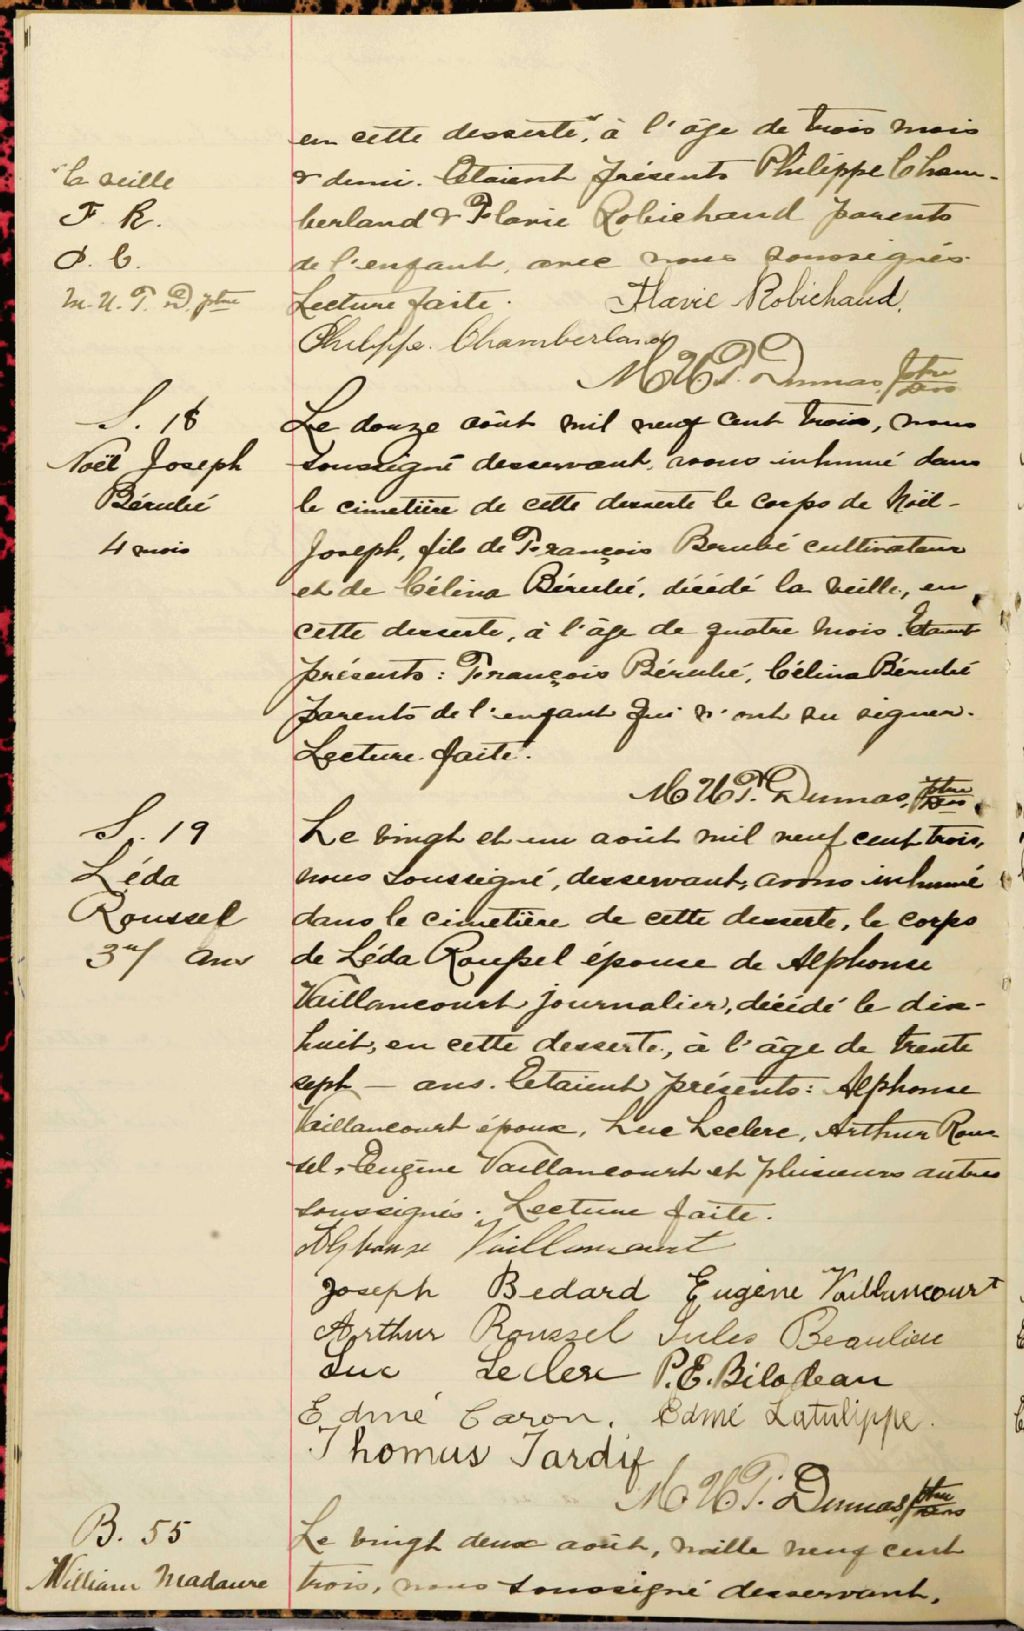 en cette desserte, à l'âge de trois mois
la veille
& demi. Etaient présents Philippe Cham-
F. R.
berland & Flavie Robichaud parents
P. C.
de l'enfant, avec nous soussignés.
M. U. T. D. ptre
Lecture faite. Flavie Robichaud,
Philippe. Chamberland
M U T. Dumas, ptre
S. 18
Le douze août mil neuf cent trois, nous
Noël Joseph
soussigné desservant, avons inhumé dans
Bérubé
le cimetière de cette desserte le corps de Noël-
4 mois
Joseph, fils de François Berubé cultivateur
et de Célina Bérubé, décédé la veille, en
cette desserte, à l'âge de quatre mois. Etaient
présents: François Bérubé, Célina Bérubé
parents de l'enfant qui n'ont su signer.
Lecture faite.
M U T. Dumas, ptre
S. 19
Le vingt et un août mil neuf cent trois,
Léda
nous soussigné, desservant, avons inhumé
Roussel
dans le cimetière de cette desserte, le corps
ans
de Léda Roussel épouse de Alphonse
Vaillancourt journalier, décédé le dix-
huit, en cette desserte, à l'âge de trente
sept — ans. Etaient présents: Alphonse
Vaillancourt époux, Luc Leclerc, Arthur Rous
sel, Eugène Vaillancourt et plusieurs autres
soussignés. Lecture faite.
Alphonse Vaillancourt
Joseph Bedard Eugène Vaillancourt
Arthur Roussel Jules Beaulieu
Luc Leclerc P.E. Bilodeau
Edmé Caron. Edmé Latulippe.
Thomus Tardif
M U T. Dumas, ptre
B. 55
Le vingt deux août, mille neuf cent
William Madaure
trois, nous soussigné desservant,